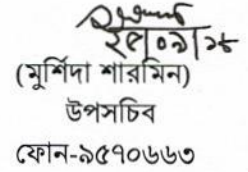 ২৫/০৯/১৮
(মুর্শিদা শারমিন)
উপসচিব
ফোন-৯৫৭০৬৬৩